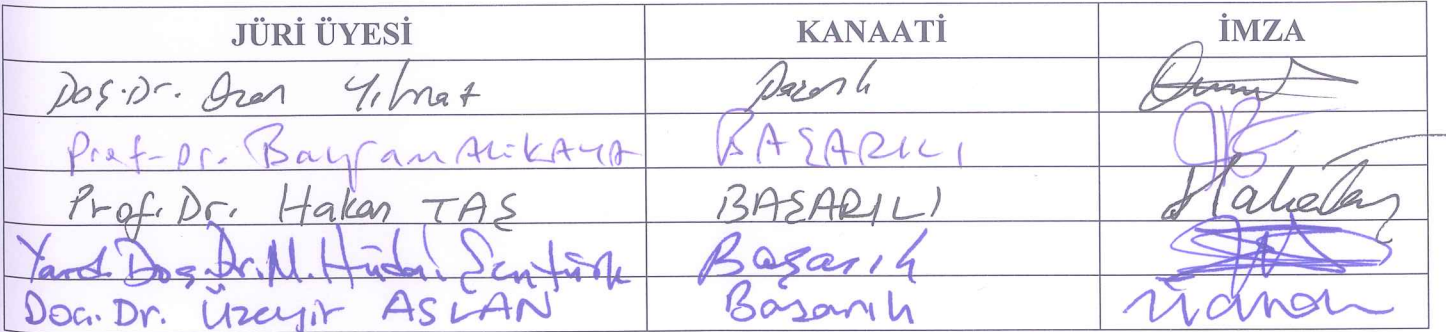 JÜRİ ÜYESİ KANAATİ İMZA
Doç.Dr. Ozan Yılmaz Başarılı
Prof. Dr. Bayram ALİ KAYA BAŞARILI
Prof. Dr. Hakan TAŞ BAŞARILI
Yard. Doç. Dr. M. Hüdai Şentürk Başarılı
Doç. Dr. Üzeyir ASLAN Başarılı